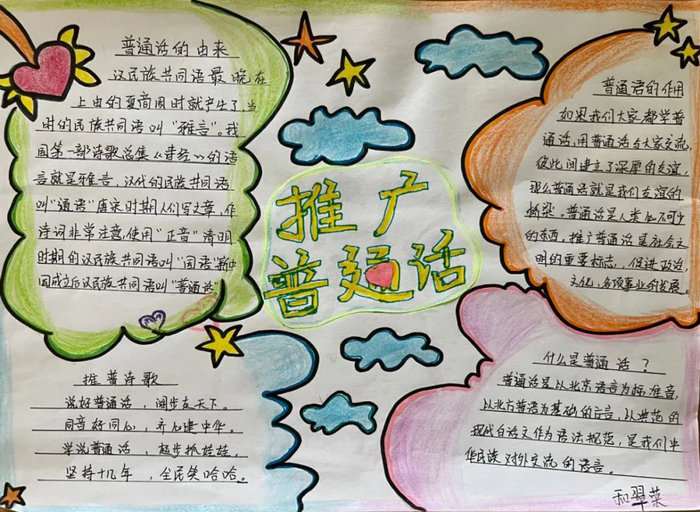 普通话的由来
汉民族共同语最晚在
上由的夏商周时就产生了,当
时的民族共同语叫“雅言”。我
国第一部诗歌总集《诗经》的语
言就是雅言,汉代的民族共同语
叫“通语”唐宋时期人们写文章,作
诗词非常注意,使用“正音”清明
时期的汉民族共同语叫“国语”新中
国成立后汉民族共同语叫“普通话”
推广
普通话
普通话的作用
如果我们大家都学普
通话,用普通话与大家交流,
彼此间建立了深厚的友谊,
那么普通话就是我们友谊的
桥梁。普通话是人类必不可少
的东西,推广普通话是社会文
明的重要标志,促进政治
文化,各项事业的发展。
推普诗歌
说好普通话,阔步走天下。
同音好同心,齐心建中华。
学说普通话,起步抓娃娃,
坚持十几年,全民笑哈哈。
什么是普通话?
普通话是以北京语言为标准音,
以北方普语为基础的方言,以典范的
现代白话文作为语法规范,是我们中
华民族对外交流的语言。
和翠荣